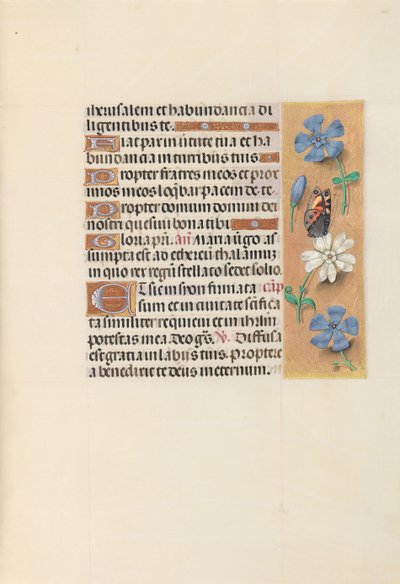 iherusalem et habundancia di
ligentibus te.
Fiat pax in v̓tute tua et ha
bundancia in turribus tuis.
Propter fratres meos et prox
imos meos loq̄bar pacem de te.
Propter domum domini dei
nostri quesivi bona tibi
Gloria pr̄i. an̄. Maria v̓go as
sumpta est ad ethereū thalamū
in quo rex regū stellato sedet solio.
Et sic in syon firmata cap̄
sum et in civitate sc̄ifica
ta similiter requievi et in ihrl̄m
potestas mea deo gr̄s. V̓. Diffusa
est gratia in labiis tuis. Proptere
a benedixit te deus in eternum.